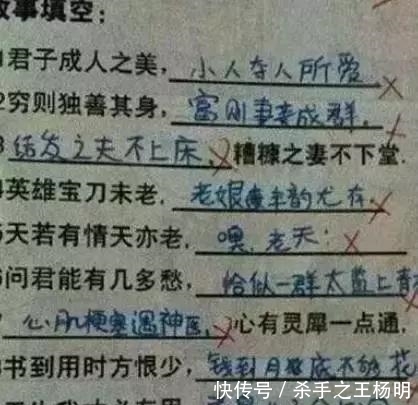 故事填空:
1君子成人之美,小人夺人所爱
2穷则独善其身,富则妻妾成群.
3结发之夫不上床,糟糠之妻不下堂.
4英雄宝刀未老,老娘丰韵尤存.
5天若有情天亦老,噢,老天!
6问君能有几多愁,恰似一群太监上青
心肌梗塞遇神医,心有灵犀一点通,
书到用时方恨少,钱到月底不够花
快传号/杀手之王杨明